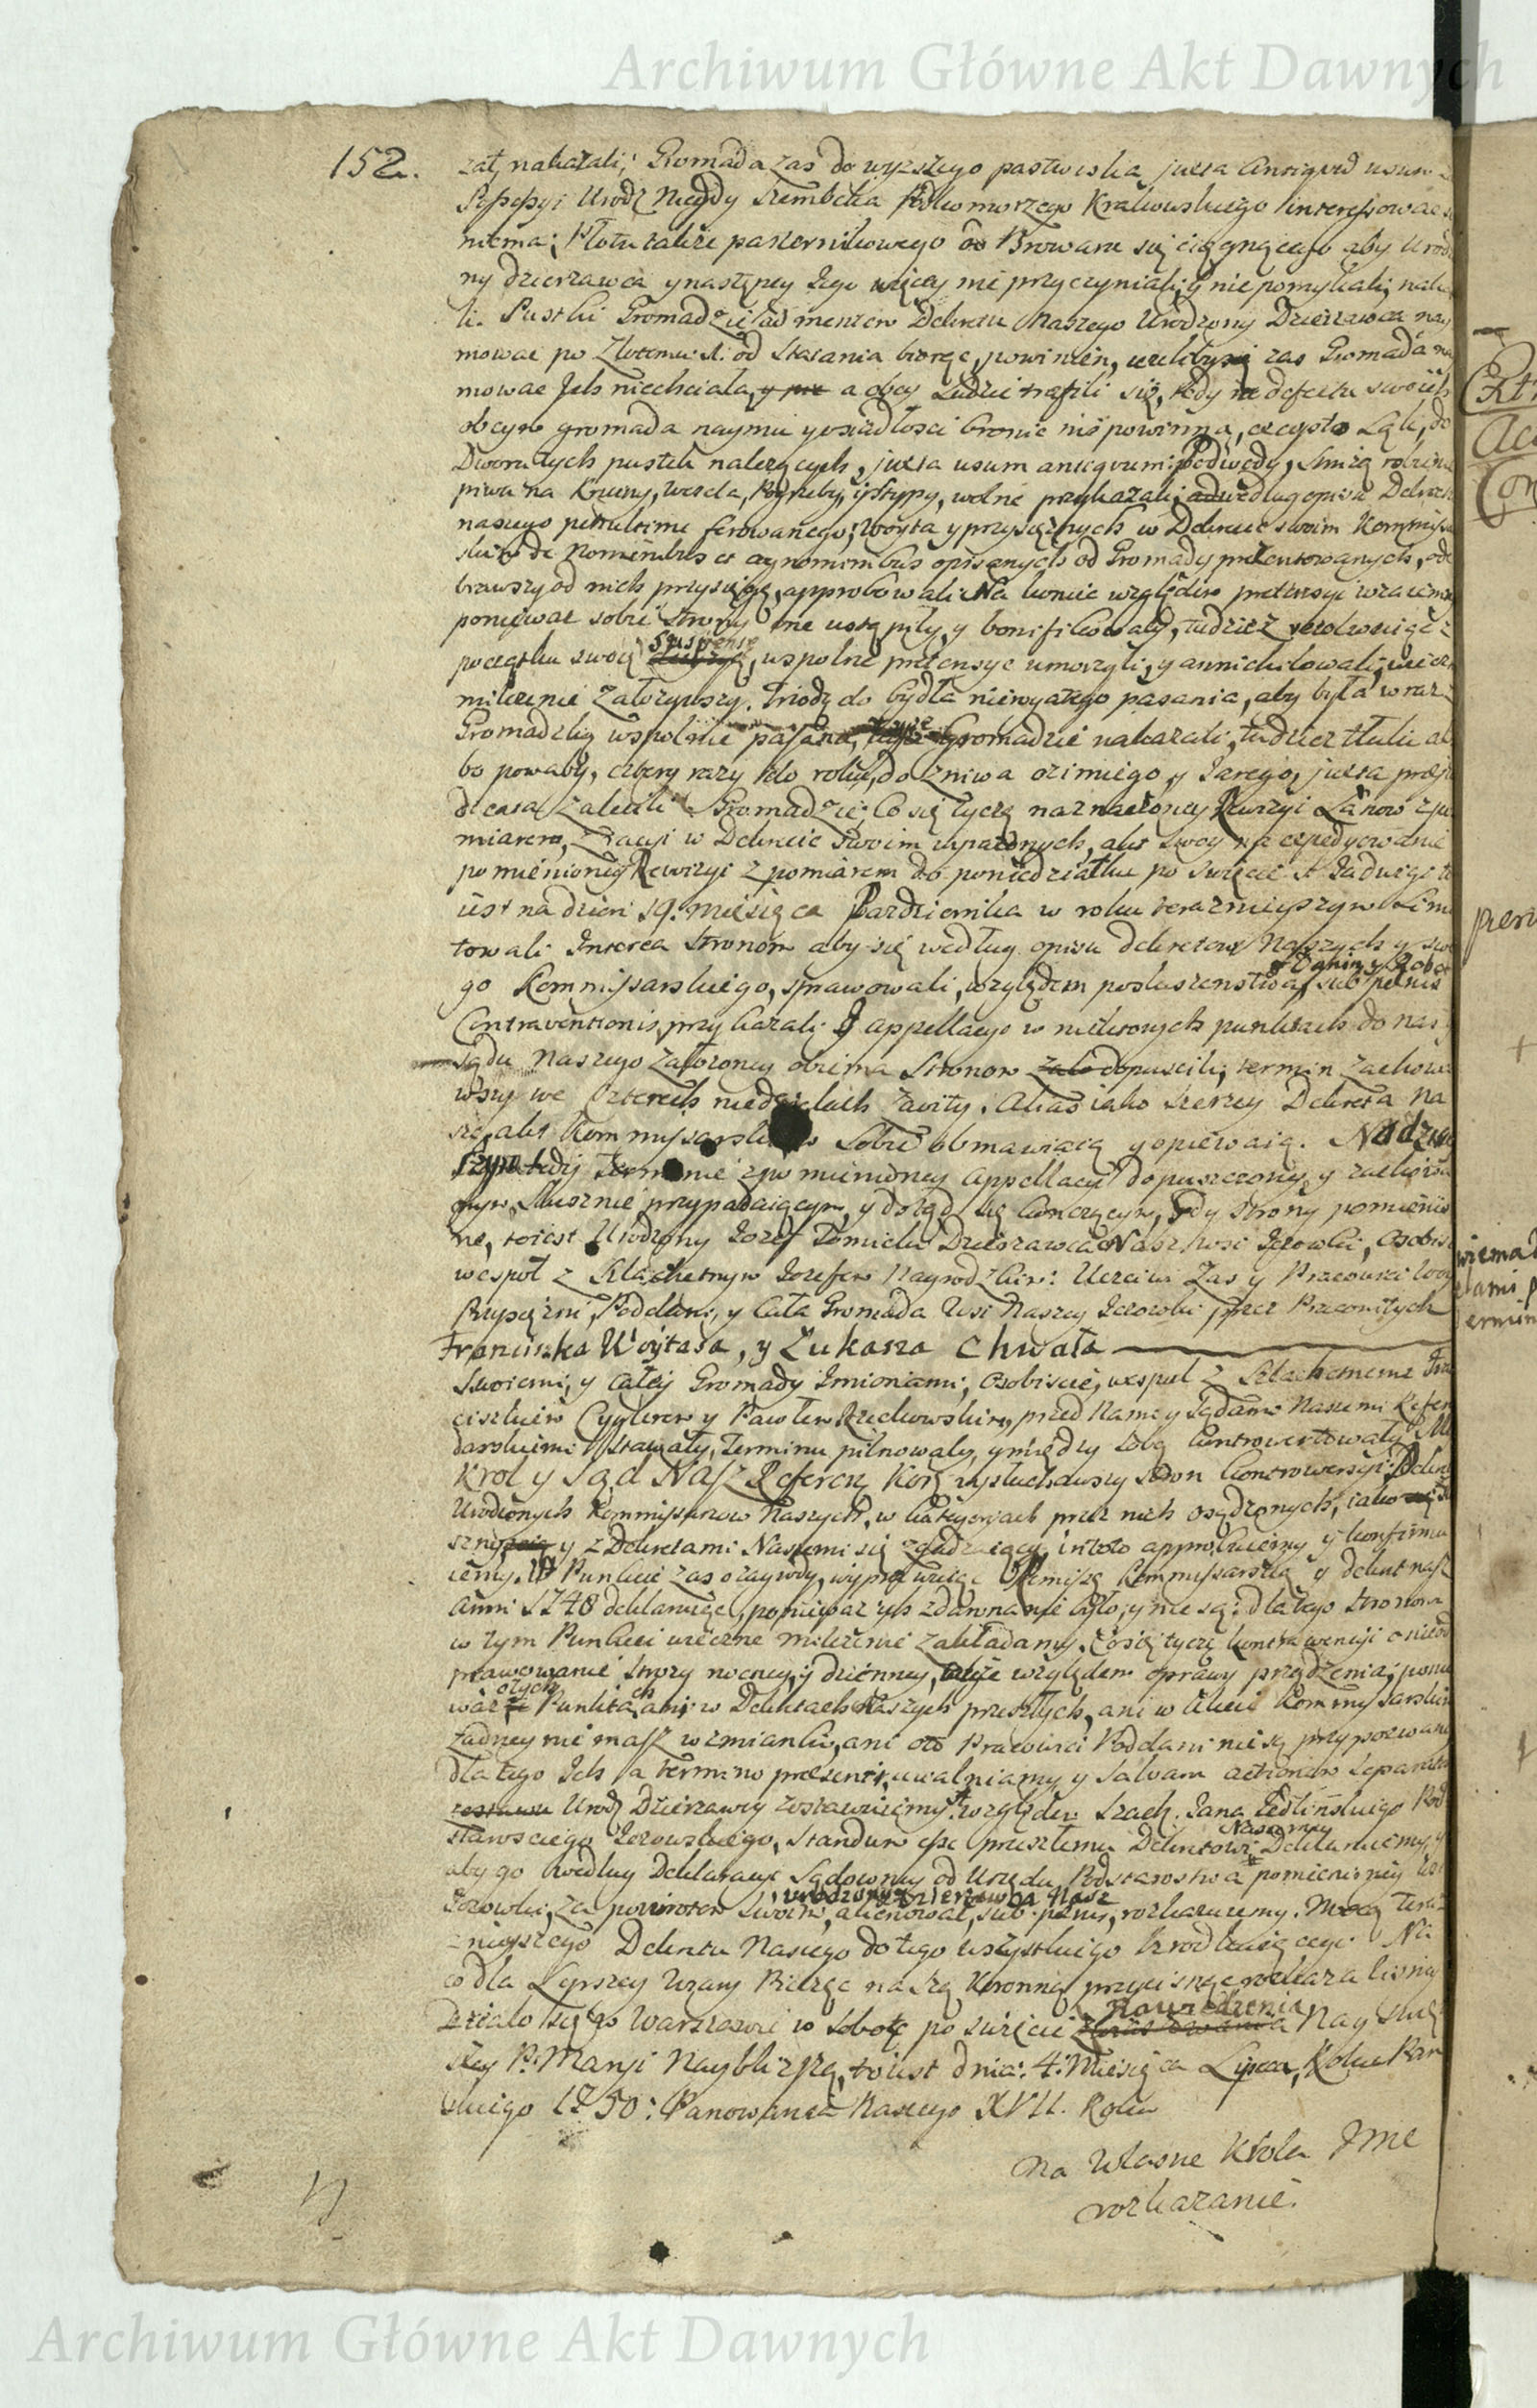 Archiwum Główne Akt Dawnych
152.
zał nakazali; Gromada zas do wyzszego pastwiska juxta antiqvū usum
Possessyi Urodz Niegdy Szembeka Podkomorzego Krakowskiego interessowac
niema; Płotu także pasternikowego do Browaru się ciągnącego aby Urodzo
ny dzierzawca y następcy Jego więcy nie przyczyniali, y nie pomykali, naka
li. Pustki Gromadzie ad mentem Dekretu Naszego Urodzony Dzierzawca nay
mowac po Złotemu 1. od Stajania biorąc, powinien, jezeliby się zas Gromada na
mowac Jch niechciała, a obcy Ludzie trafili się, tedy in defectu swoich
obcym gromada naymu y osiadłosci bronic nie powinna, oczysto Łąk, do
Dworu tych pustek nalezących, juxta usum antiqvum: Podwody, Struzą robienie
piwa na Krzciny, Wesela, Pogrzeby, y Stypy, wolne przykazali według opisu Dekretu
naszego penultime ferowanego; Woyta y przysięznych w Dekrecie swoim Kommissar
skim de nominibus et cognominibus opisanych od Gromady prezentowanych, ode
brawszy od nich przysięgę, approbowali. Na koniec względem pretensyi wzaiemn
poniewaz sobie Strony one ustąpiły, y bonifikowały, tudziez rewolwuiąc z
początku swoiey Suspense, wspolne pretensye umorzyli, y annichilowali, wieczne
milczenie załozywszy. Trzody do bydła niewyałego pasania, aby była wraz z
Gromadzką wspolnie pasana, Gromadzie nakazali, tudziez tłuki al
bo powaby, cztery razy do roku, do zniwa ozimego, y Jarego, juxta præju
dicata zalecili Gromadzie; Co się tycze naznaczoney Rewizyi Łanow z po
miarem, z racyi w Dekrecie swoim wyrazonych, akt swoy na expedyowanie
pomienioney Rewizyi z pomiarem do poniedziałku po swięcie S. Jadwigi to
iest na dzien 19. Miesiąca Pazdziernika w roku teraznieyszym Limi
towali. Interea Stronom aby się według opisu dekretow Naszych y swo
y Dani y Robot
go Kommissarskiego, sprawowali, względem posłuszenstwa, sub pœnis
Contraventionis przykazali. y appellacyi w niektorych punktach do nas
sądu Naszego załozoney obiema Stronom dopuscili, termin zachowa
wszy we czterech niedzielach zawity. Alias iako szerzey Dekreta na
sze, akt Kommissarski w Sobie obmawiaią y opiewaią. Na dzisie
szym tedy Terminie z pomienioney Appellacyi dopuszczoney, y zachowa
nym, słusznie przypadaiącym, y dotąd się konczącym, gdy Strony pomienio
ne, to iest Urodzony Jozef Tomicki Dzierzawca Nasz Wsi Jezowki, osobis
wespoł z Szlachetnym Jozefem Nagrodzkim: Uczciwi zas y Pracowici Woy
Przysięzni, Poddani, y cała Gromada Wsi Naszey Jezowki przez Pracowitych
Franciszka Woytasa, y Łukasza Chwała
Swoiemi, y całey Gromady Jmionami, Osobiscie, wespoł z Szlachetnemi Fran
ciszkiem Cyglerem y Pawłem Rzechowskim, przed Nami y Sądami Naszemi Refere
darskiemi Stawały, Terminu pilnowały, y między sobą kontrowertowały. My
Krol y Sąd Nasz Referen. Kor. wysłuchawszy Stron Kontrowersyi, Dekre
Urodzonych Kommissarzow Naszych, w kategoryach przez nich osądzonych, iako słu
szny y z Dekretami Naszemi się zgadzaiący, in toto approbuiemy y konfirmu
iemy. W Punkcie zas wypro Remissą Kommissarską y dekret nasz
Anni 1748 deklaruiąc, poniewaz ich zdawna nie było, y nie są: dla tego Stronom
w tym Punkcie wieczne milczenie zakładamy. Co się tycze kontrawencyi o nieod
prawowanie strozy nocney, y dzienney, względem oprawy przędzenia; ponie
waz o tych Punktach ani w Dekretach Naszych przeszłych, ani w Akcie Kommissarskim
zadney nie masz wzmianki, ani oto Pracowici Poddani nie są przypozwani
dla tego Jch a termino præsenti, uwalniamy, y salvam actionem separatam
Urodz Dzierzawcy zostawuiemy. względem Szlach. Jana Jedlińskiego Pod
Naszemu
starosciego Jezowskiego, Standum esse przeszłemu Dekretowi Deklaruiemy, y
aby go według Deklaracyi Sądowney od Urzędu Podstarostwa pomienioney Wsi
Urodzony Dzierzawca Nasz
Jezowki, za powrotem Swoim, alienował, sub pœnis, rozkazuiemy. Mocą Tera
znieyszego Dekretu Naszego do tego wszystkiego Na
co dla Lepszey Wiary Pieczęć naszą Koronną przycisnąć rozkazalismy
Działo się w Warszawie w Sobotę po swięcie Nawiedzenia Nayswię
tszey P. Maryi Naybliszszą, to iest dnia: 4. Miesiąca Lipca, Roku Pan
skiego 1750: Panowania Naszego XVII. Roku
Na własne Krola Jme
rozkazanie.
Archiwum Główne Akt Dawnych